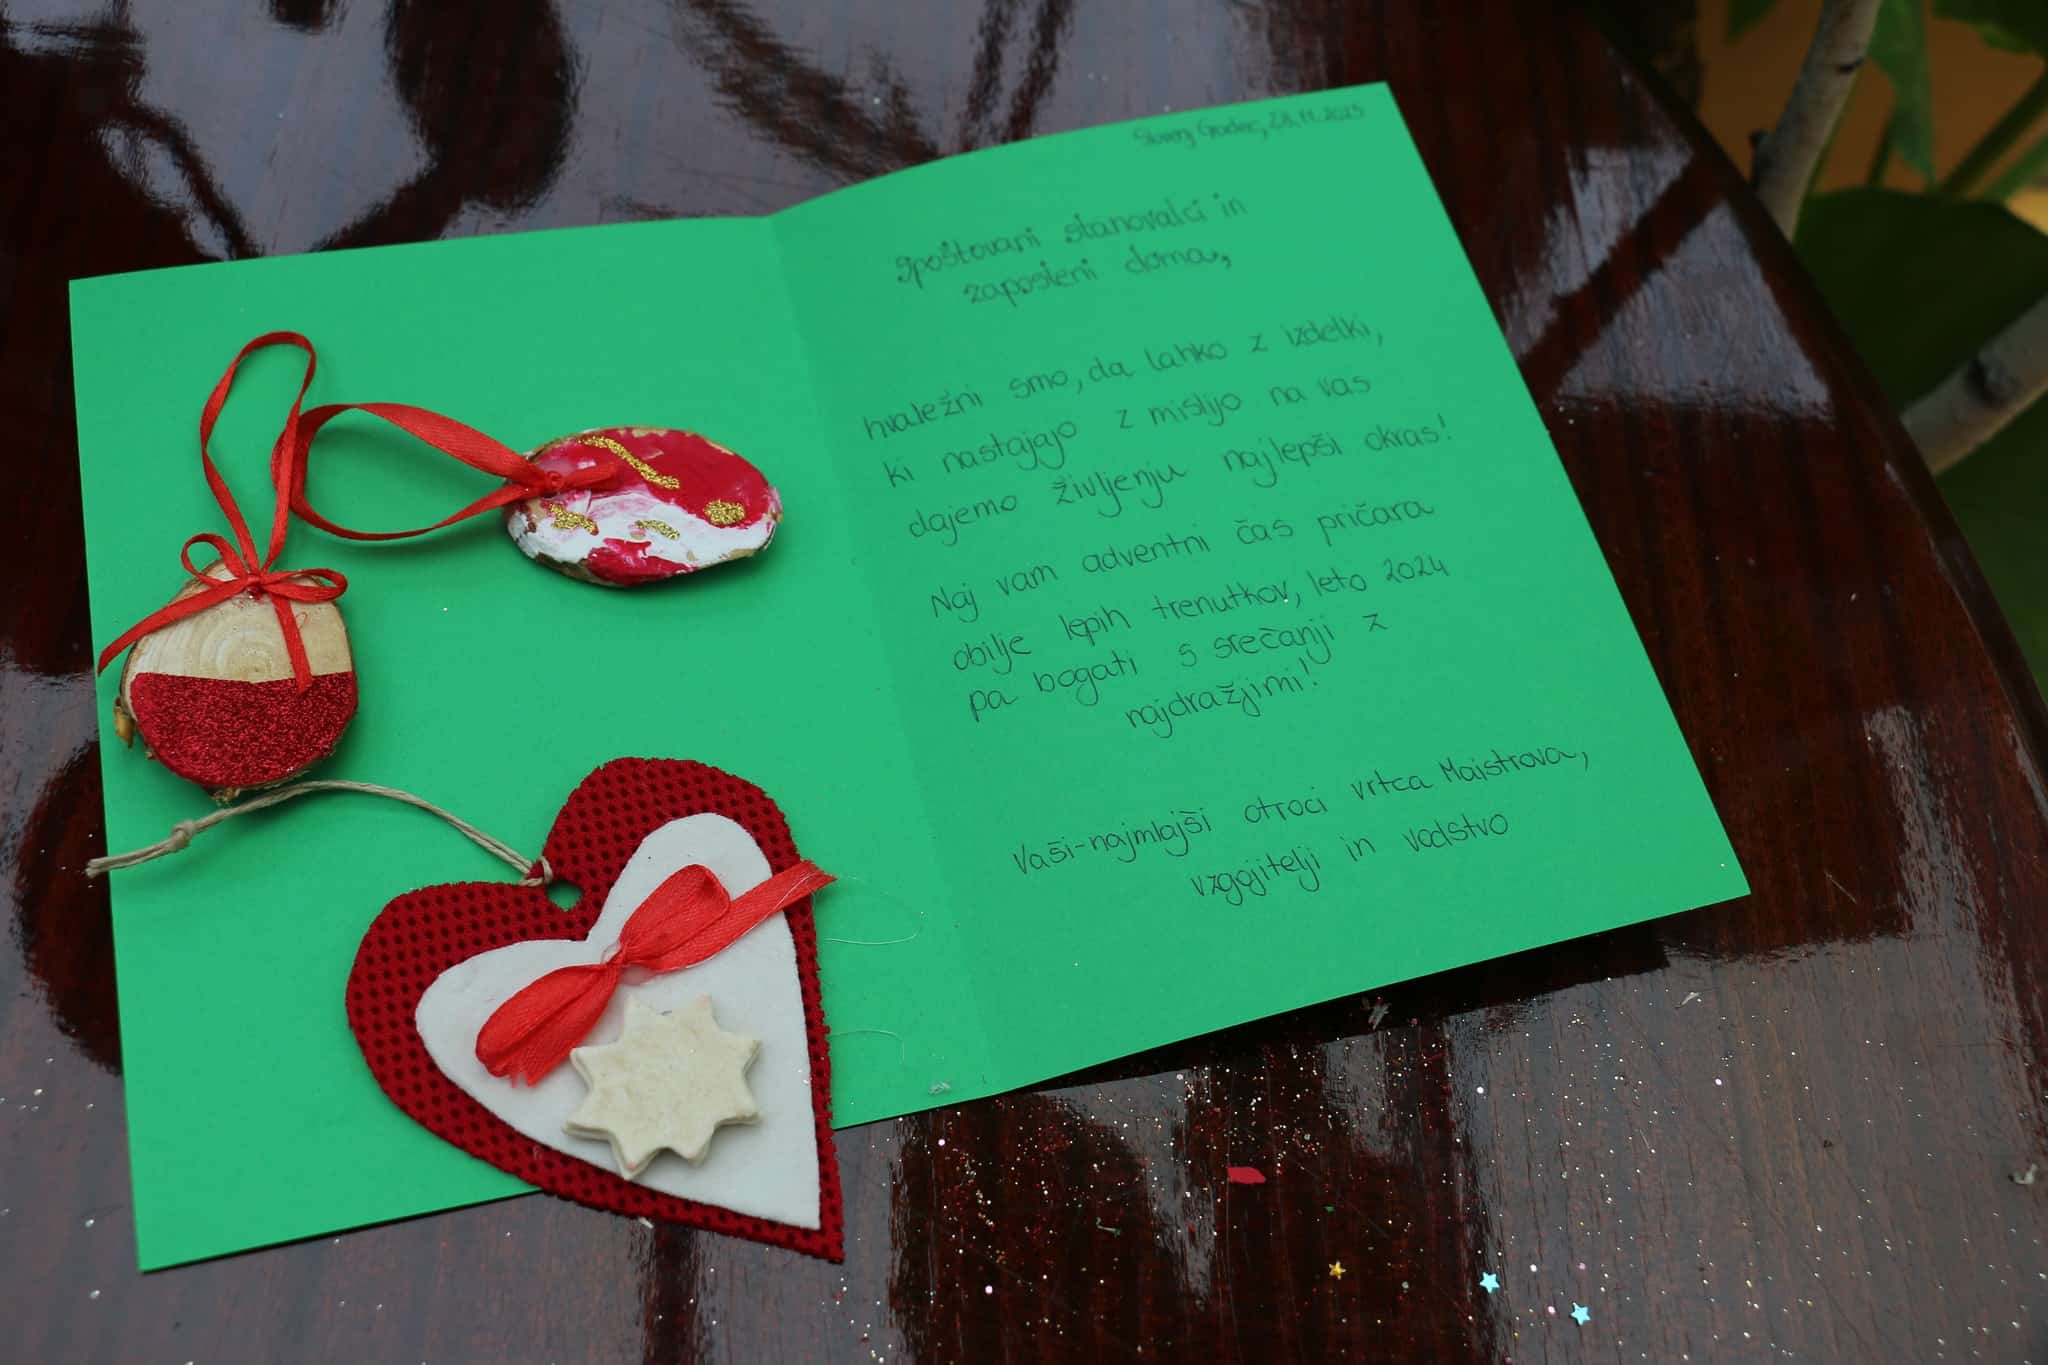 Slovenj Gradec, 28.11.2023
Spoštovani stanovalci in
zaposleni doma,
hvaležni smo, da lahko z izdelki,
ki nastajajo z mislijo na vas
dajemo življenju najlepši okras!
Naj vam adventni čas pričara
obilje lepih trenutkov, leto 2024
pa bogati s srečanji z
najdražjimi!
Vaši-najmlajši otroci vrtca Maistrova,
vzgojitelji in vodstvo